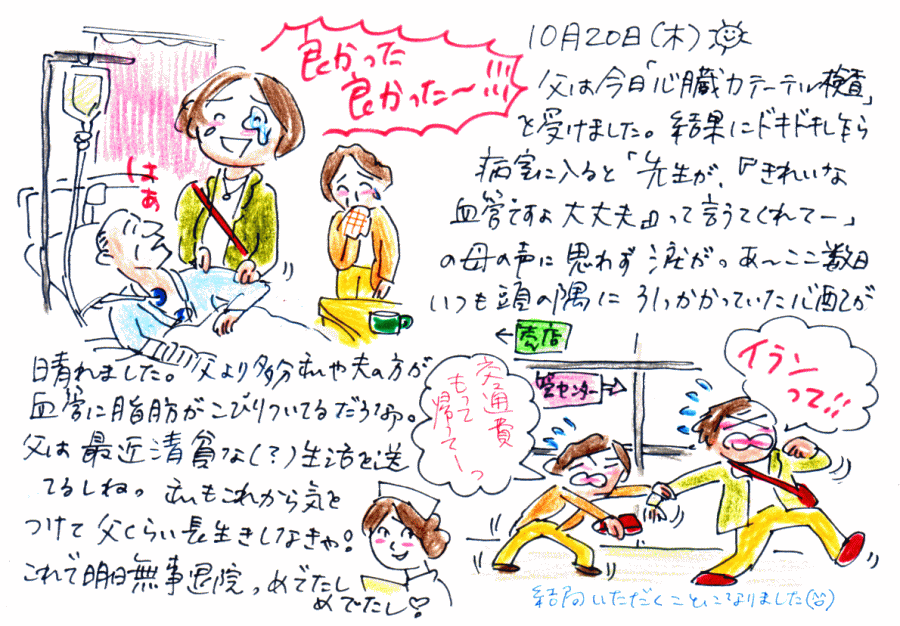 良かった
良かった〜!!!
はあ
10月20日(木)
父は今日「心臓カテーテル検査」
を受けました。結果にドキドキしながら
病室に入ると「先生が、『きれいな
血管ですよ大丈夫』って言うてくれてー」
の母の声に思わず涙が。あ〜ここ数日
いつも頭の隅に引っかかっていた心配が
晴れました。父より多分私や夫の方が
血管に脂肪がこびりついてるだろうなぁ。
父は最近清貧な(?)生活を送っ
てるしね。私もこれから気を
つけて父くらい長生きしなきゃ!
これで明日無事退院。めでたし
めでたし♡
←売店
センター→
交通費
もって
帰ってーっ
イラン
って!!
結局いただくことになりました